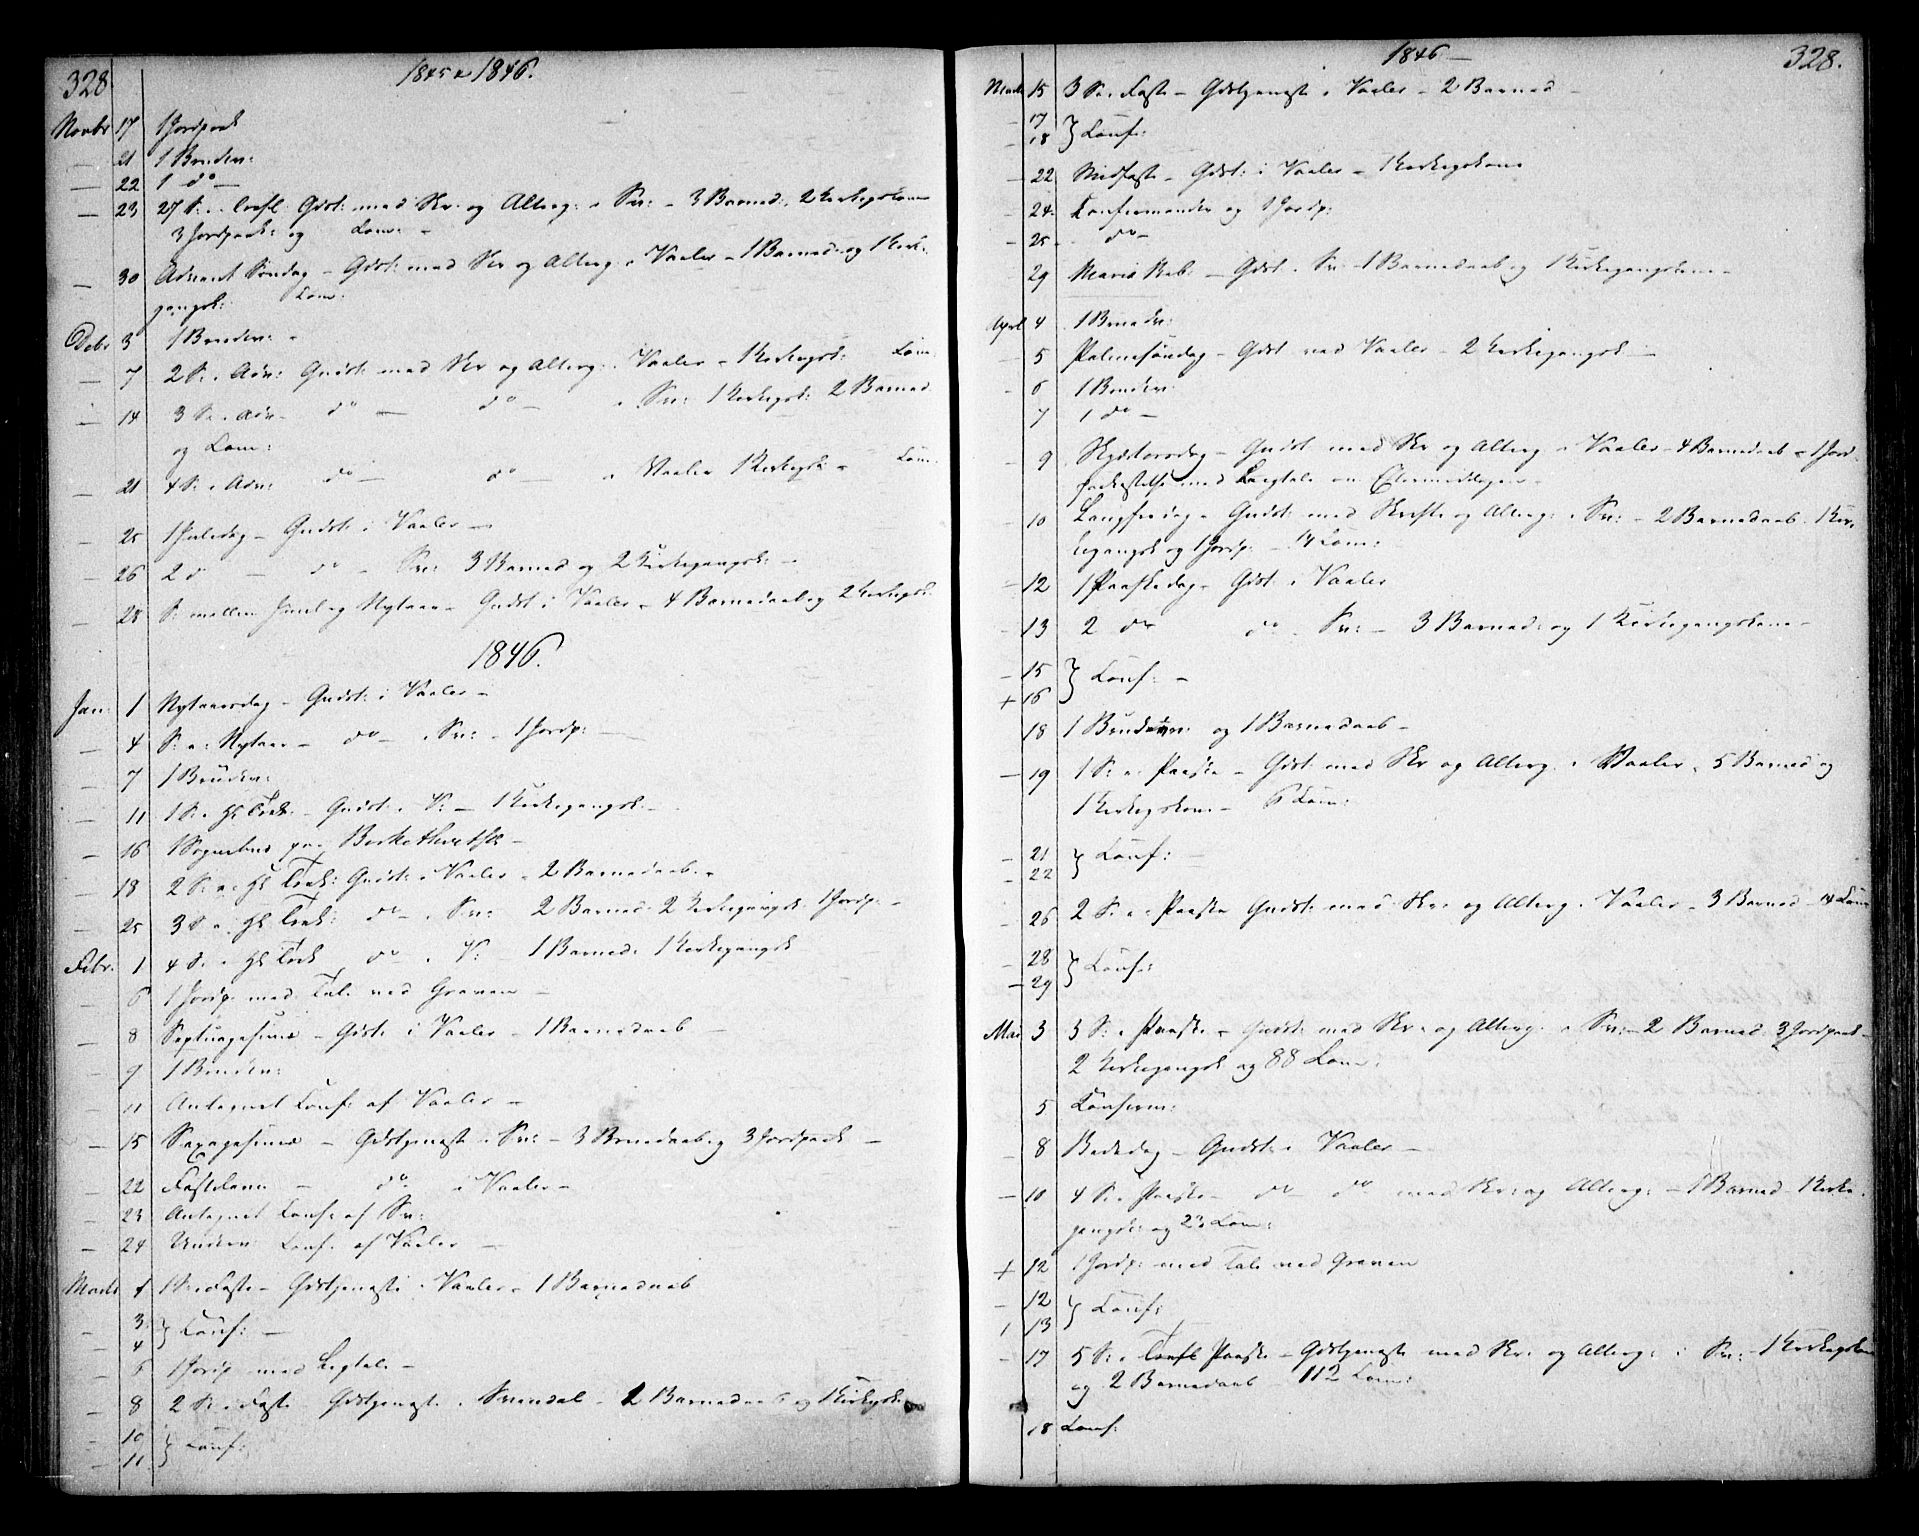 328
1845 & 1846.
Novbr 17 1 Jordpaak
— 21 1 Brudev:
— 22 1 do —
— 23 27 S: e. Trefl: Gdst: med Skr: og Alterg: i Sv: – 3 Barned: 2 Kirkegskone
3 Jordpaak: og Com: –
30 Advent Søndag – Gdst: med Skr og Alterg. i Vaaler – 1 Barned: og 1 Kirke-
gangsk: Com:
Debr 3 1 Brudev: –
— 7 2 S. i Adv: Gudst: med Skr og Alterg: i Vaaler – 1 Kirkegsk: Com:
— 14 3 S. i Adv – do — do — i Sv: 1 Kirkegsk: 2 Barned
og Com:
— 21 4 S. i Adv: do — do — i Vaaler 1 Kirkegsk – Com:
— 25 1 Juledag – Gudst: i Vaaler –
— 26 2 d — do – Sv: 3 Barned og 2 Kirkegangsk: –
— 28 S: mellem Juul og Nytaar – Gudst i Vaaler – 4 Barnedaab og 2 Kirkegsk:
1846.
Jan: 1 Nytaarsdag – Gudst: i Vaaler –
— 4 S: e: Nytaar – do — i Sv: – 1 Jordp: —
— 7 1 Brudev:
— 11 1 S. e. Hl Trek. – Gudst. i V: – 1 Kirkegangsk –
— 16 1 Sognebud paa
— 18 2 S. e. Hl Trek: Gudst: i Vaaler – 2 Barnedaab –
— 25 3 S e. Hl Trek: do — i Sv: 2 Barned. 2 Kirkegangsk. 1 Jordp: –
Febr. 1 4 S. e Hl Trek do — i V: – 1 Barned: 1 Kirkegangsk
— 6 1 Jordp. med Tale ved Graven –
— 8 Septuagesimæ – Gdst: i Vaaler – 1 Barnedaab –
— 9 1 Brudev:
— 11 Antegnet Conf: af Vaaler –
— 15 Sexagesimæ – Gdstjeneste i Sv: – 3 Barnedaab og 3 Jordpaak –
— 22 Fastelavn – do i Vaaler –
— 23 Antegnet Conf: af Sv:
— 24 Underv: Conf. af Vaaler –
Marts 1 1 S. i Faste – Gdstjeneste i Vaaler – 1 Barnedaab
— 3
4 } Conf: –
5 1 Jordp med Ligtale –
— 8 2 S. i Faste Gdstjeneste i Svendal – 2 Barnedaab og 1 Kirkegsk:
— 10
— 11 } Conf:
1846 —
328.
Marts 15 3 S. i Faste – Gdstjeneste i Vaaler – 2 Barned –
— 17
— 18 } Conf:
— 22 Midfaste – Gdst: i Vaaler – 1 Kirkegskone
— 24 Confirmander og 1 Jordp:
— 25 – do –
— 29 Maria Beb: – Gdst i Sv: – 1 Barnedaab og 1 Kirkegangskone –
April 4 1 Brudev:
— 5 Palmesøndag – Gdst ved Vaaler – 2 Kirkegangsk –
— 6 1 Brudev:
7 1 do –
— 9 Skjærtorsdag – Gudst med Skr og Alterg i Vaaler – 4 Barnedaab – 1 Jord-
paakastelse med Ligtale om Eftermiddagen –
— 10 Langfredag – Gudst: med Skrifte og Alterg: i Sv: – 2 Barnedaab. 1 Kir-
kegangsk og 1 Jordp: – 14 Com:
— 12 1 Paaskedag – Gdst: i Vaaler
— 13 2 do do i Sv: – 3 Barned: og 1 Kirkegangskone –
— 15
+ 16 } Conf: –
18 1 Brudev: og 1 Barnedaab –
— 19 1 S: e: Paaske – Gdst: med Skr og Alterg. i Vaaler. 5 Barned og
1 Kirkegskone – 6 Com:
— 21
— 22 } Conf: –
— 26 2 S. e: Paaske Gudst: med Skr: og Alterg. i Vaaler – 3 Barned – 14 Com
— 28
— 29 } Conf:
Mai 3 3 S. e Paaske – Gudst: med Skr: og Alterg. i Sv: – 2 Barned: 3 Jordpaak –
2 Kirkegangsk og 88 Com:
5 Confirm:
— 8 Bededag – Gudst: i Vaaler –
— 10 4 S. e Paaske – do – do med Skr: og Alterg: – 1 Barned – 1 Kirke-
gangsk: og 23 Com:
+ 12 1 Jordp: med Tale ved Graven
— 12
1 13 } Conf:
— 17 5 S: e. Paaske – Gdstjeneste med Skr: og Alterg: i Sv: – 1 Kirkegskone
og 2 Barnedaab 112 Com:
18 Conf.